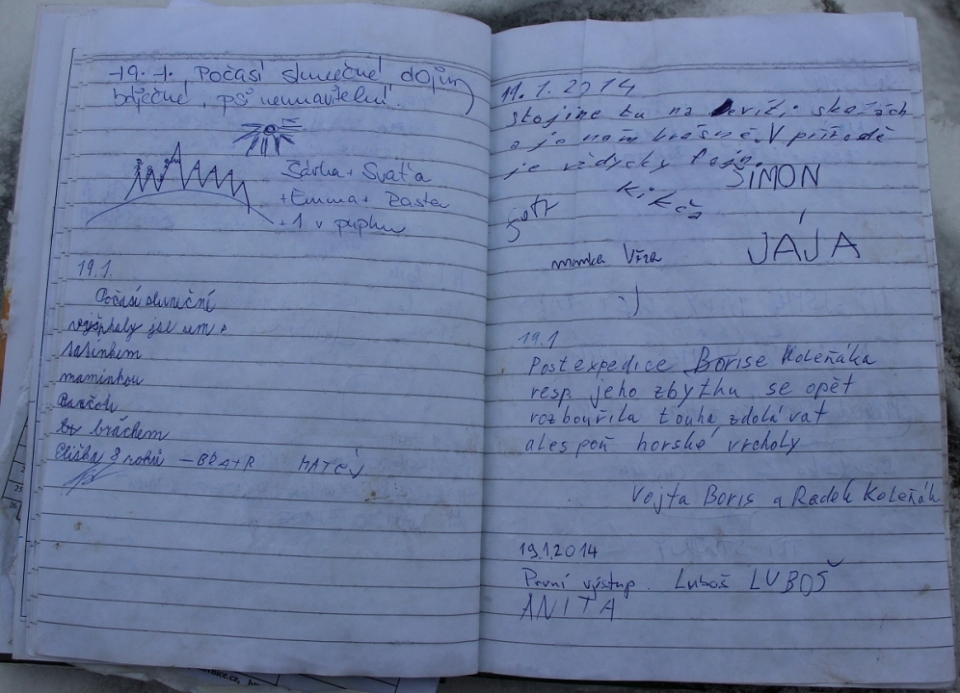 19. 1. Počasí slunečné dojmy
báječné, psi neunavitelní.
Šárka + Sváťa
+ Emma + Basta
+ 1 v pupku
19.1.
Počasí sluneční
vyšphaly jse sem s
taťínkem
mamínkou
bráchem
Eliška 8 roků – BRATR MATĚJ
19.1.2014
stojíme tu na skalách
a je nám krásně. V přírodě
je vždycky fajn.
ŠIMON
Kikča
JÁJA
mamka Věra
19.1
Post expedice Borise Koleňáka
resp. jeho zbytku se opět
rozbouřila touha zdolávat
alespoň horské vrcholy
Vojta Boris a Radek Koleňák
19.1.2014
První výstup. Luboš LUBOŠ
ANITA